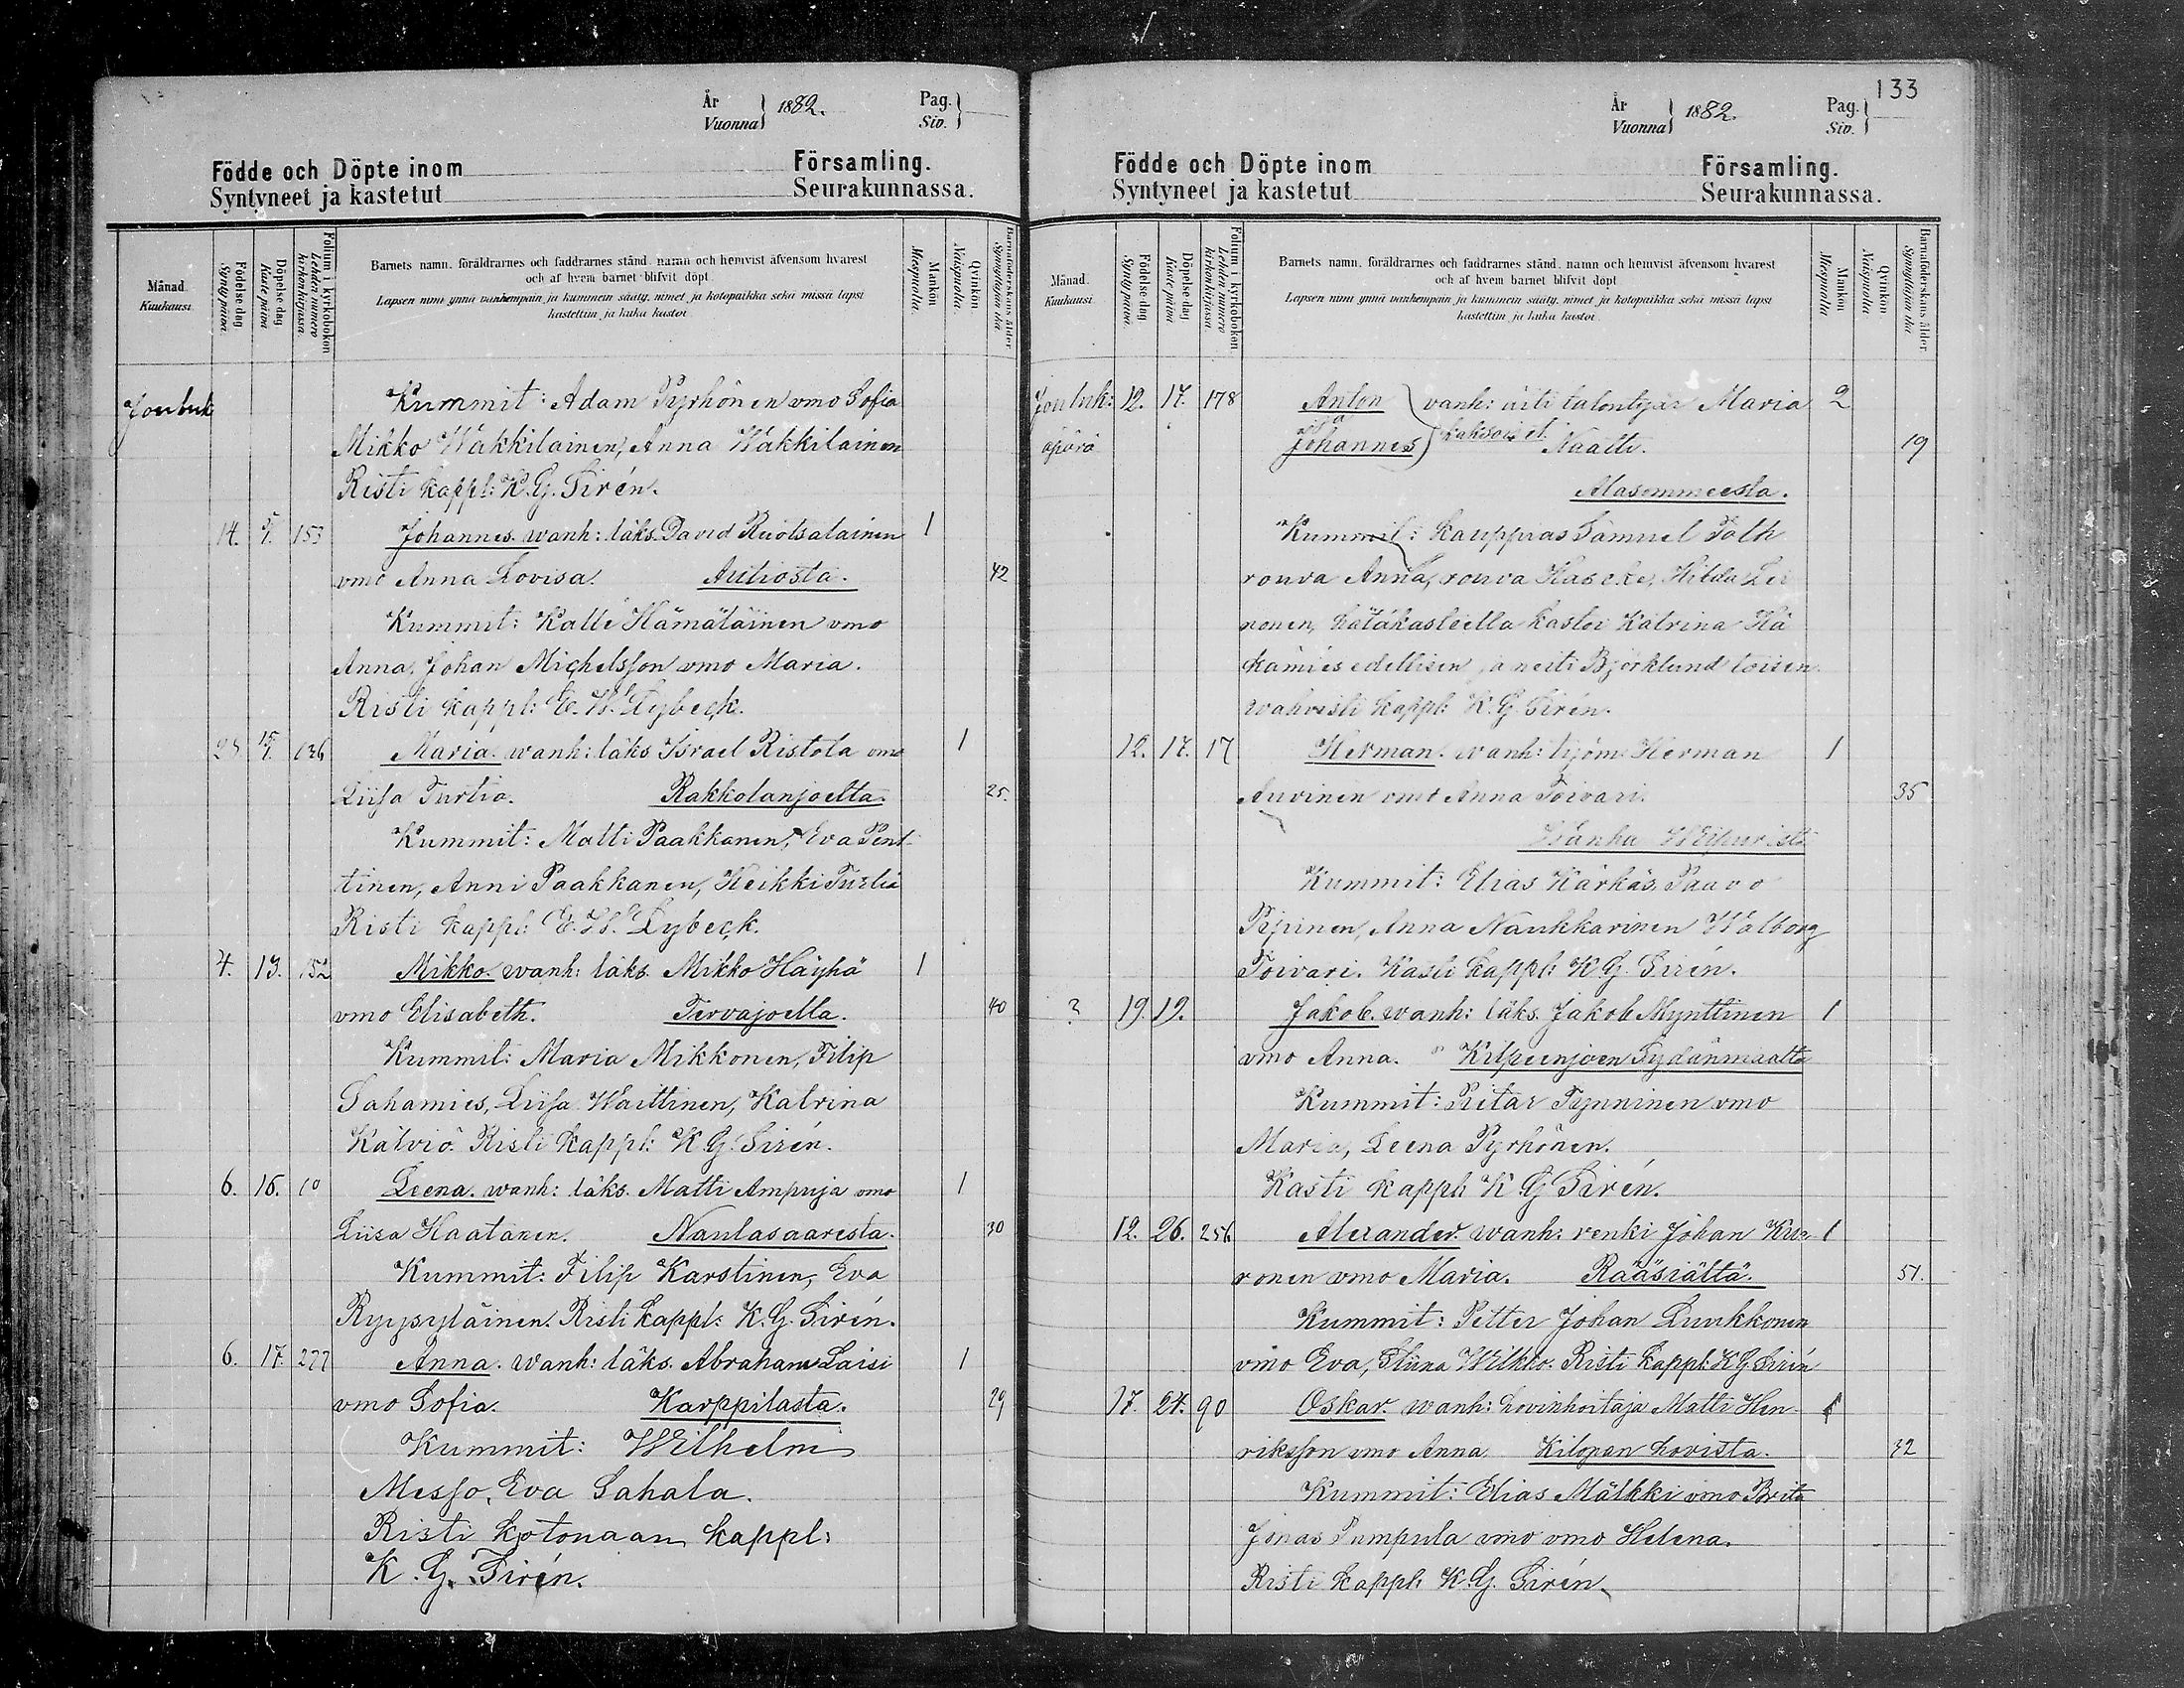 År
Vuonna } 1882.
Pag.
Siv. }
Födde och Döpte inom Församling.
Syntyneet ja kastetut Seurakunnassa.
Månad
Kuukausi
Födelse dag
Synty päivä.
Döpelse dag
Kaste päivä
Folium i kyrkoboken
Lehden numero kirkonkirjassa.
Barnets namn, föräldrarnes och faddrarnes stånd, namn och hemvist äfvensom hvarest
och af hvem barnet blifvit döpt.
Lapsen nimi ynnä vanhempain ja kummein sääty, nimet ja kotopaikka sekä missä lapsi
kastettiin ja kuka kastoi
Mankön
Miespuolia.
Qvinkön
Naispuolia.
Barnaföderskans ålder
Synnyttäjän ikä
Jouluk
Kummit: Adam Pyrhönen vmo Sofia
Mikko Wakkilainen, Anna Wakkilainen
Risti kappl: K. G. Sirén.
14. 153 Johannes. wanh: läks. David Ruotsalainen 1
vmo Anna Lovisa. Autiosta. 42
Kummit: Kalle Hämäläinen vmo
Anna, Johan Michelsson vmo Maria.
Risti kappl: E. W. Lybeck.
Maria. wanh: läks Israel Ristola vmo 1
Liisa Turtia. Rakkolanjoelta. 25.
Kummit: Matti Paakkanen, Eva Pent-
tinen, Anni Paakkanen, Heikki Turtia
Risti kappl: E. W. Lybeck.
4. 13. 152 Mikko. wanh: läks. Mikko Häyhä 1
vmo Elisabeth. Tervajoella. 40
Kummit: Maria Mikkonen, Filip
Sahamies, Liisa Waittinen, Katrina
Kälviö. Risti kappl: K. G. Sirén.
6. 16. 10 Leena. wanh: läks. Matti Ampuja vmo 1
Liisa Haatanen. Nautasaaresta. 30
Kummit: Filip Karstinen, Eva
Ryypsyläinen. Risti kappl: K. G. Sirén.
6. 17. 277 Anna. wanh: läks. Abraham Laisi 1
vmo Sofia. Karppilasta. 29
Kummit: Wilhelm
Messo, Eva Sahala.
Risti kotonaan kappl:
K. G. Sirén.
133
År
Vuonna } 1882.
Pag.
Siv. }
Födde och Döpte inom Församling.
Syntyneet ja kastetut Seurakunnassa.
Månad.
Kuukausi
Födelse dag
Synty päivä.
Döpelse dag
Kaste päivä
Folium i kyrkoboken
Lehden numero kirkonkirjassa.
Barnets namn, föräldrarnes och faddrarnes stånd, namn och hemvist äfvensom hvarest
och af hvem barnet blifvit döpt
Lapsen nimi ynnä vanhempain ja kummein sääty, nimet ja kotopaikka sekä missä lapsi
kastettiin ja kuka kastoi.
Mankön
Miespuolia
Qvinkön
Naispuolia.
Barnaföderskans ålder
Synnyttäjän ikä
Jouluk: 12. 17. 178 Anton vanh: äiti talontytär Maria 2
äpärä ja Johannes kaksoiset. Naatti. 19
Alasommeesta.
Kummit: kauppias Samuel
rouva Anna, rouva Hascke, Hilda Lei
nonen, hätäkasteella kastoi Katrina Hä
kämies edellisen ja neiti Björklund toisen
wahvisti kappl: K. G. Sirén.
12. 17. 17 Herman. wanh: työm: Herman 1
Auvinen vmo Anna Toivari. 35
Wanha Wiipurista
Kummit: Elias Kärkäs, Paavo
Anna Naukkarinen Walborg
Toivari. Kasti kappl: K. G. Sirén.
? 19. 19. Jakob. wanh: läks. Jakob Mynttinen 1
vmo Anna. Kilpeenjoen Sydänmaalta
Kummit: Pietar Tynninen vmo
Maria, Leena Pyrhönen.
Kasti kappl: K G Sirén.
12. 26. 256 Alexander. wanh: renki Johan Kuo- 1
ronen vmo Maria. Rääsiältä. 51.
Kummit: Petter Johan Luukkonen
vmo Eva, Stiina Wilkko. Risti kappl: K G Sirén
17. 24. 90 Oskar. wanh: hovinhoitaja Matti Hen- 1
riksson vmo Anna. Kilopan hovista. 32
Kummit: Elias Mälkki vmo Brita
Jonas Pumpula vmo vmo Helena.
Risti kappl: K. G. Sirén.